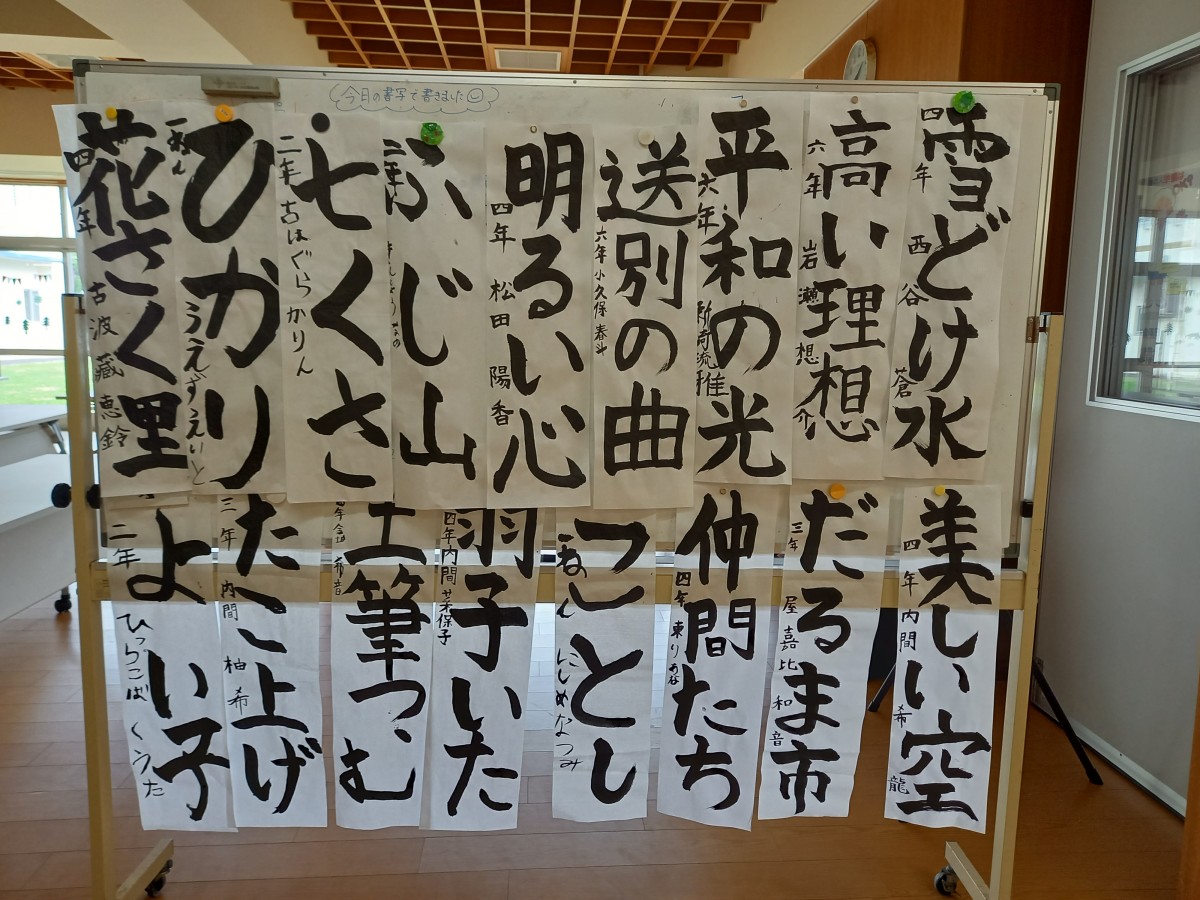 今日の書写で書きました
雪どけ水
四年 西谷 蒼
高い理想
六年 岩瀬 想介
平和の光
六年
送別の曲
六年 小久保 春斗
明るい心
四年 松田 陽香
ふじ山
二年
七くさ
二年 古はぐら かりん
ひかり
一ねん うえずえいと
花さく里
四年 古波藏 恵鈴
美しい空
四年 内間 希龍
だるま市
三年 屋嘉比 和音
仲間たち
四年 東り
ことし
一ねん にしめなつみ
羽子いた
四年 内間 菜保子
土筆つむ
四年
たこ上げ
三年 内間 柚希
よい子
二年 ひっらこばくうた